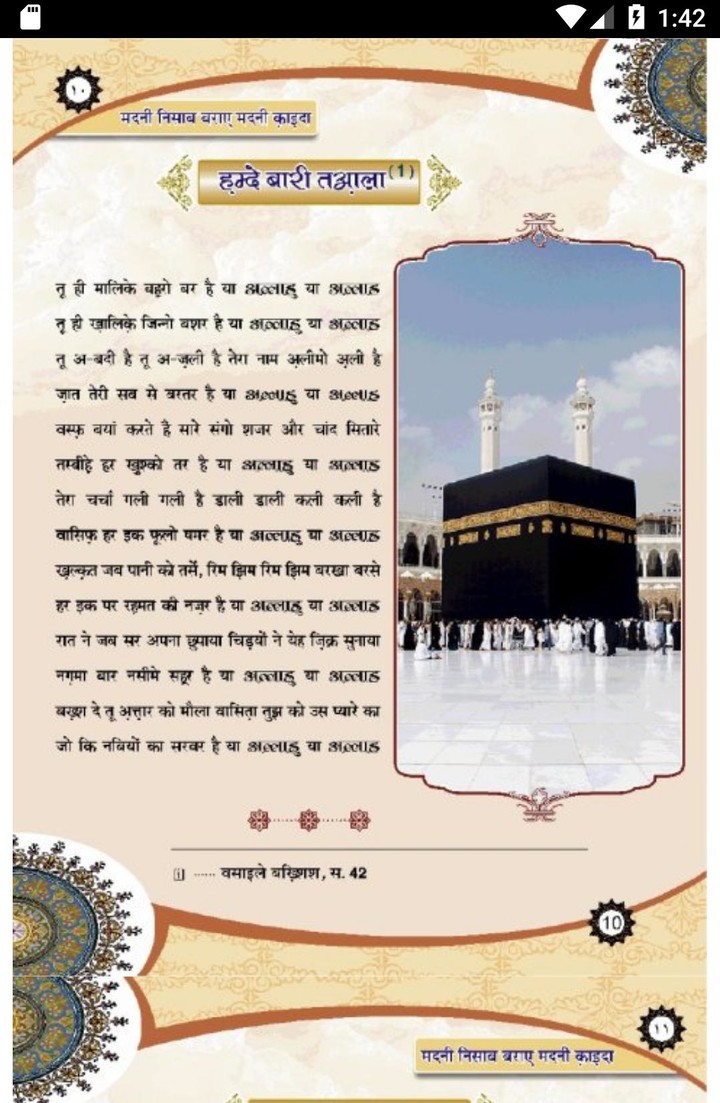 1:42
١٠
मदनी निसाब बराए मदनी क़ाइदा
ह़म्दे बारी तआ़ला (1)
तू ही मालिके बह़रो बर है या अल्लाहु या अल्लाह
तू ही ख़ालिक़े जिन्नो बशर है या अल्लाहु या अल्लाह
तू अ-बदी है तू अ-ज़ली है तेरा नाम अ़लीमो अ़ली है
ज़ात तेरी सब से बरतर है या अल्लाहु या अल्लाह
वस्फ़ बयां करते हैं सारे संगो शजर और चांद सितारे
तस्बीहे़ हर खु़श्को तर है या अल्लाहु या अल्लाह
तेरा चर्चा गली गली है डाली डाली कली कली है
वासिफ़ हर इक फूलो समर है या अल्लाहु या अल्लाह
ख़ल्क़त जब पानी को तर्से, रिम झिम रिम झिम बरखा बरसे
हर इक पर रह़मत की नज़र है या अल्लाहु या अल्लाह
रात ने जब सर अपना छुपाया चिड़यों ने येह ज़िक्र सुनाया
नग़मा बार नसीमे सह़र है या अल्लाहु या अल्लाह
बख़्श दे तू अ़त्त़ार को मौला वासित़ा तुझ को उस प्यारे का
जो कि नबियों का सरवर है या अल्लाहु या अल्लाह
1 ...... वसाइले बख़्शिश, स. 42
10
١١
मदनी निसाब बराए मदनी क़ाइदा